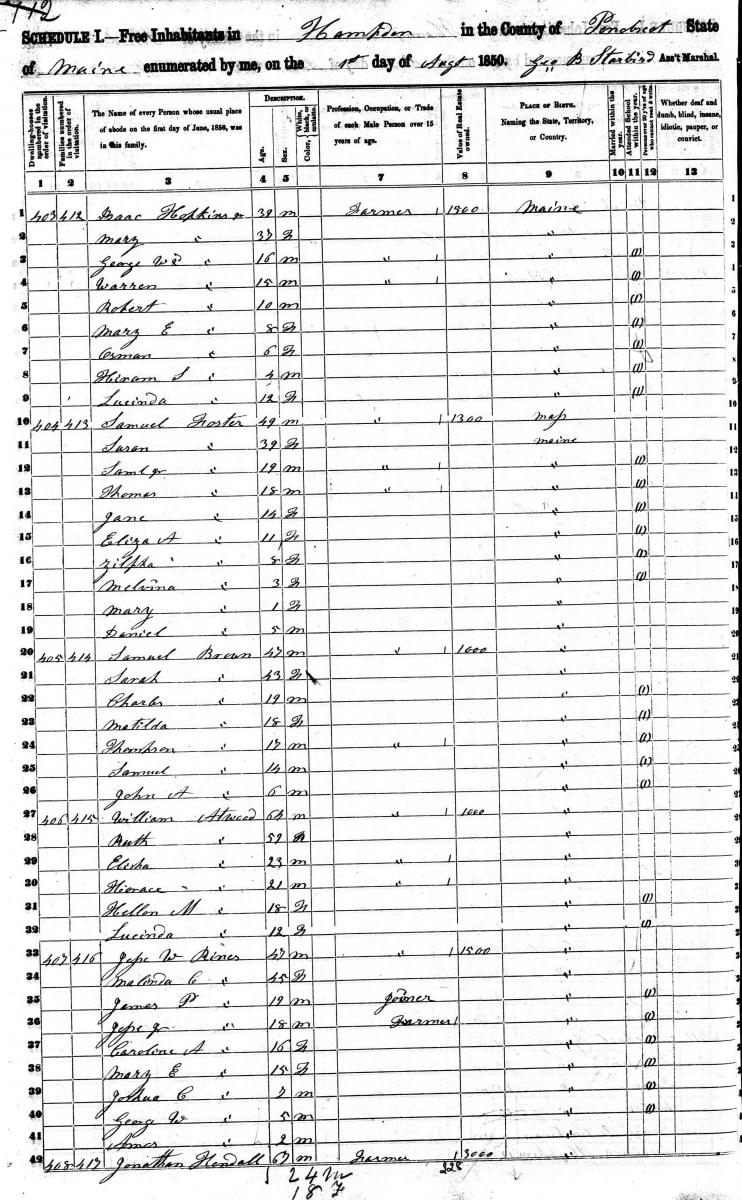 712
SCHEDULE I.—Free Inhabitants in Hampden in the County of Penobscot State
of Maine enumerated by me, on the 1st day of Augt 1850. Geo B Starbird Ass't Marshal.
Dwelling-houses numbered in the order of visitation. Families numbered in the order of visitation. The Name of every Person whose usual place of abode on the first day of June, 1850, was in this family. DESCRIPTION. Age. Sex. Color, White, black, or mulatto. Profession, Occupation, or Trade of each Male Person over 15 years of age. Value of Real Estate owned. PLACE OF BIRTH. Naming the State, Territory, or Country. Married within the year. Attended School within the year. Persons over 20 y'rs of age who cannot read & write. Whether deaf and dumb, blind, insane, idiotic, pauper, or convict.
1 2 3 4 5 6 7 8 9 10 11 12 13
1 403 412 Isaac Hopkins Jr 39 m Farmer 1 Maine
2 Mary " 37 F "
3 George " 16 m " 1 " (1)
4 Warren " 15 m " 1 " (1)
5 Robert " 10 m " (1)
6 Mary E " 8 F " (1)
7 Orman " 6 F " (1)
8 Hiram S " 4 m " (1)
9 Lucinda " 12 F " (1)
10 404 413 Samuel Foster 49 m " 1 1300 Mass
11 Saran " 39 F Maine
12 Saml Jr " 19 m " 1 " (1)
13 Thomas " 18 m " 1 " (1)
14 Jane " 14 F " (1)
15 Eliza A " 11 F " (1)
16 Zilpha " 8 F " (1)
17 Melvina " 3 F " (1)
18 Mary " 1 F "
19 Daniel " 5 m "
20 405 414 Samuel Brown 47 m " 1 1000 "
21 Sarah " 43 F "
22 Charles " 19 m " (1)
23 Matilda " 18 F " (1)
24 Thompson " 17 m " 1 " (1)
25 Samuel " 14 m " (1)
26 John A " 6 m " (1)
27 406 415 William Atwood 64 m " 1 1000 "
28 Ruth " 59 F "
29 Elisha " 23 m " 1 "
30 Horace " 21 m " 1 "
31 Hellen M " 18 F " (1)
32 Lucinda " 12 F " (1)
33 407 416 Jesse W Rines 47 m " 1 1500 "
34 Malinda C " 45 F "
35 James P " 19 m Joiner " (1)
36 Jesse Jr " 18 m Farmer 1 " (1)
37 Caroline A " 16 F " (1)
38 Mary E " 15 F " (1)
39 Joshua C " 7 m " (1)
40 George W " 5 m " (1)
41 Amos " 2 m "
42 408 417 Jonathan Kendall 67 m Farmer 1 3000 "
24 m
18 F
228